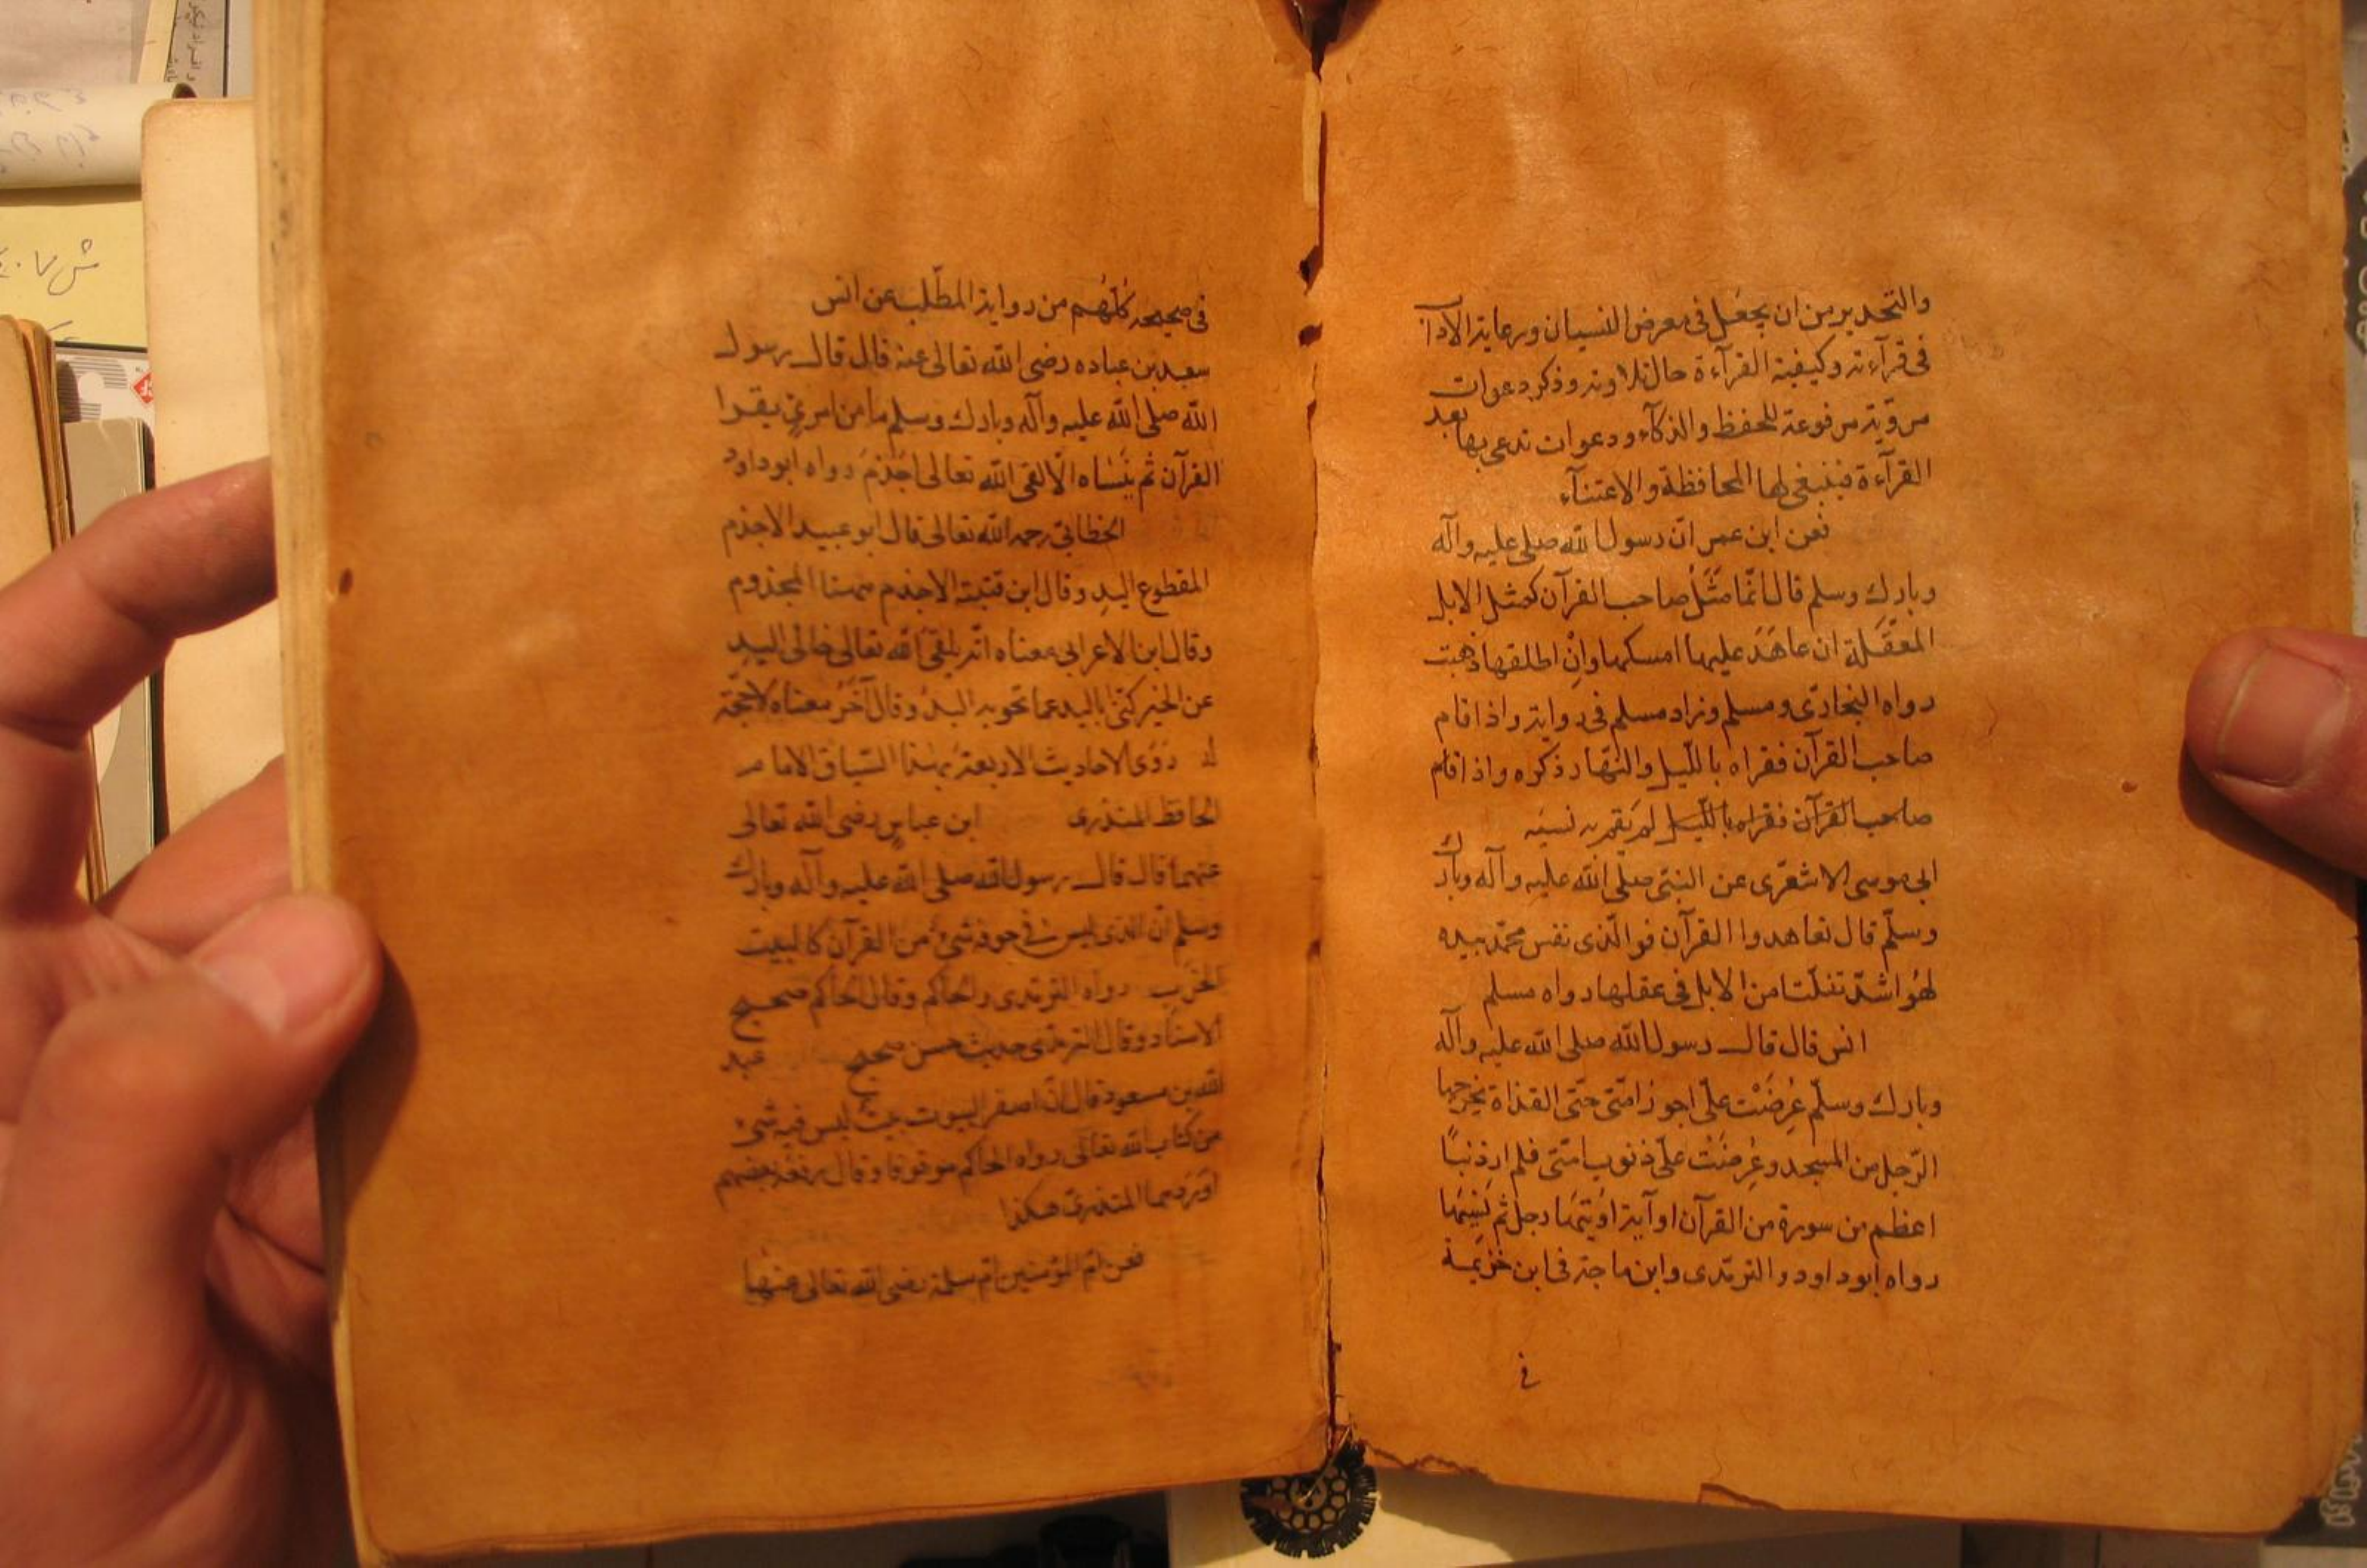 والتحذير من ان يجعل في معرض النسيان ورعاية الاداب
في قرآءته وكيفية القرآءة حال تلاوته وذكر دعوات
مروية مرفوعة للحفظ والذكآء ودعوات تدعى بها بعد
القرآءة فينبغي لها المحافظة والاعتنآء
فعن ابن عمر انّ رسول الله صلى عليه وآله
وبارك وسلم قال انّما مَثَلُ صاحب القرآن كمثل الابل
المعقّلة ان عاهَدَ عليها امسكها وانْ اطلقها ذهبت
رواه البخاري ومسلم وزاد مسلم في رواية واذا قام
صاحب القرآن فقراه بالليل والنّهار ذكره واذا قام
صاحب القرآن فقراه بالليل لم يقم به نسيه
ابي موسى الاشعري عن النبيّ صلّى الله عليه وآله وبارك
وسلّم قال تعاهدوا القرآن فوالّذى نفس محمّد بيده
لهُو اشدّ تفلّتا من الابل في عقلها رواه مسلم
انس قال قال رسول الله صلى الله عليه وآله
وبارك وسلّم عُرِضَتْ علىّ اجور امّتى حتّى القذاة يخرجها
الرّجل من المسجد وعُرِضَتْ علىّ ذنوب امّتى فلم ار ذنبًا
اعظم من سورة من القرآن او آية اوُتيَها رجل ثم نَسِيَها
رواه ابو داود والترمذى وابن ماجة في ابن خزيمة
في
في صحيحه كُلّهُم من رواية المطّلب عن انس
سعد بن عباده رضى الله تعالى عنه قال قال رسول
الله صلى الله عليه وآله وبارك وسلم ما من امرئٍ يقرا
القرآن ثم ينَساه الّا لقى الله تعالى اجْذمَ رواه ابو داود
الخطابيّ رحمه الله تعالى قال ابو عبيد الاجذم
المقطوع اليدِ وقال ابن قتيبة الاجذم ههنا المجذوم
وقال ابن الاعرابي معناه انّه يلقى الله تعالى خالى اليدِ
عن الخير كنّى باليد عما تحويه اليدُ وقال آخرُ معناه لا حجّة
له روى الاحاديث الاربعة بهذا السّياق الامام
الحافظ المنذرى ابن عباسٍ رضى الله تعالى
عنهما قال قال رسول الله صلى الله عليه وآله وبارك
وسلم ان الذى ليس في جوفه شئ من القرآن كالبيت
الخرَب رواه الترمذى والحاكم وقال الحاكم صحيح
الاسناد وقال الترمذى حديث حسن صحيح عبد
الله بن مسعود قال انّ اصفر البيوت بيتٌ ليس فيه شئ
من كتاب الله تعالى رواه الحاكم موقوفا وقال رفعَه بعضهم
اورَدهما المنذرىّ هكذا
فعن امّ المؤمنين امّ سلمة رضى الله تعالى عنها